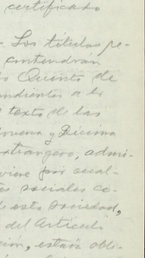 certificado
Los títulos pe-
contendrán
Quinto de
ndientes a lo
texto de las
Novena y Décima
extranjero, admi-
viene por cual-
sociales co-
de esta sociedad,
del Artículo
estará obli-